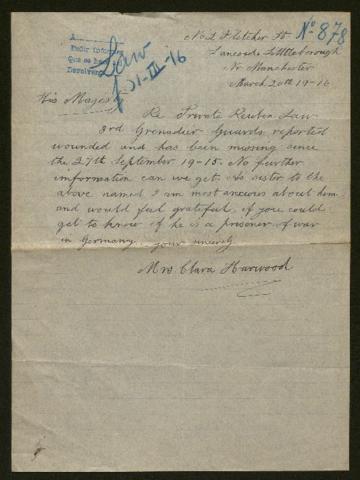 Nº 878
A
Pedir informes
Que se hac
Devolver
Law
31-III-16
No 2 Fletcher St.
Lancashire Littleborough
Nr Manchester
March 20th 19-16
His Majesty
Re Private Reuben Law
3rd Grenadier Guards, reported
wounded and has been missing since
the 27th September 19-15. No further
information can we get. As sister to the
above named I am most anxious about him
and would feel grateful, if you could
get to know if he is a prisoner of war
in Germany. your sincerely
Mrs Clara Harwood